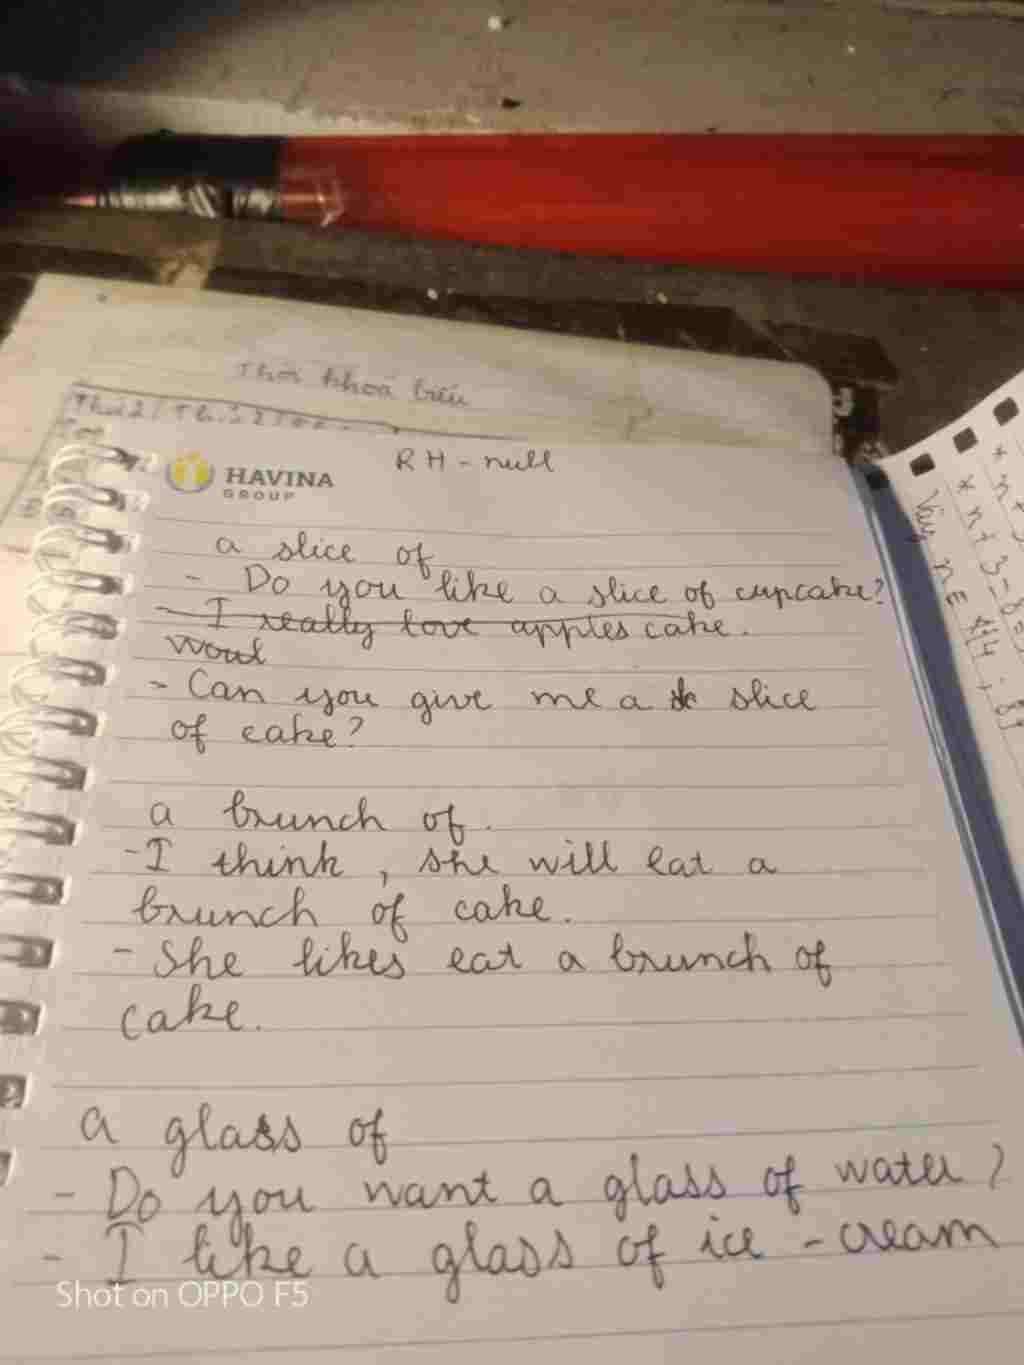 Thời khoá biểu
Thứ 2
RH - null
HAVINA
GROUP
a slice of
- Do you like a slice of cupcake?
- I really love apples cake.
Woul
- Can you give me a slice
of cake?
a brunch of.
- I think, she will eat a
brunch of cake.
- She likes eat a brunch of
cake.
a glass of
- Do you want a glass of water?
- I like a glass of ice - cream
Shot on OPPO F5